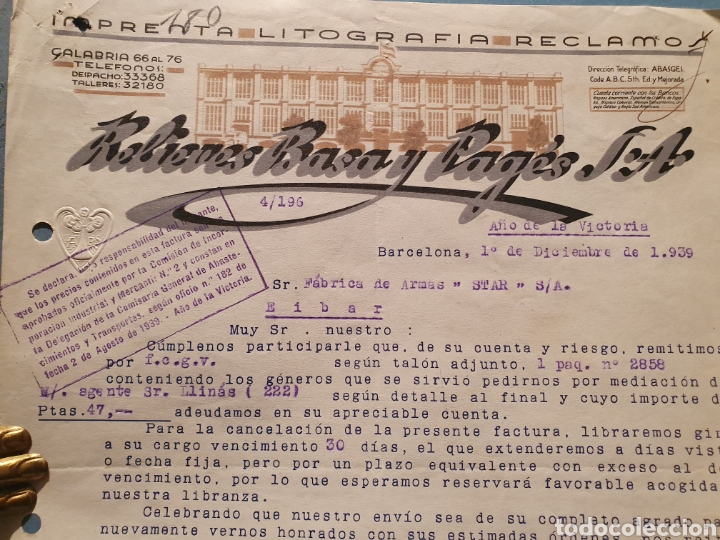 180
IMPRENTA LITOGRAFIA RECLAMOS
CALABRIA 66 AL 76
TELEFONOS:
DESPACHO: 33368
TALLERES: 32180
Dirección Telegráfica: ABASGEL
Code A.B.C. 5th. Ed. y Mejorada
Cuenta corriente con los Bancos:
Relieves Basa y Pagés S.A.
4/196
Año de la Victoria
Barcelona, 1º de Diciembre de 1.939
Se declara, bajo responsabilidad del firmante,
que los precios contenidos en esta factura son los
aprobados oficialmente por la Comisión de Incor-
poración Industrial y Mercantil N.º 2 y constan en
la Delegación de la Comisaría General de Abaste-
cimientos y Transportes, según oficio n.º 182 de
fecha 2 de Agosto de 1939. - Año de la Victoria.
Sr. Fábrica de Armas " STAR " S/A.
Eibar
Muy Sr. nuestro :
Cúmplenos participarle que, de su cuenta y riesgo, remitimos
por f.c.g.v. según talón adjunto, 1 paq. nº 2858
conteniendo los géneros que se sirvió pedirnos por mediación d
N/. agente Sr. Llinás ( 222) según detalle al final y cuyo importe d
Ptas. 47,-- adeudamos en su apreciable cuenta.
Para la cancelación de la presente factura, libraremos gir
a su cargo vencimiento 30 días, el que extenderemos a días vist
o fecha fija, pero por un plazo equivalente con exceso al d
vencimiento, por lo que esperamos reservará favorable acogida
nuestra libranza.
Celebrando que nuestro envío sea de su completo agrado
nuevamente vernos honrados con sus estimadas órdenes
todocoleccion